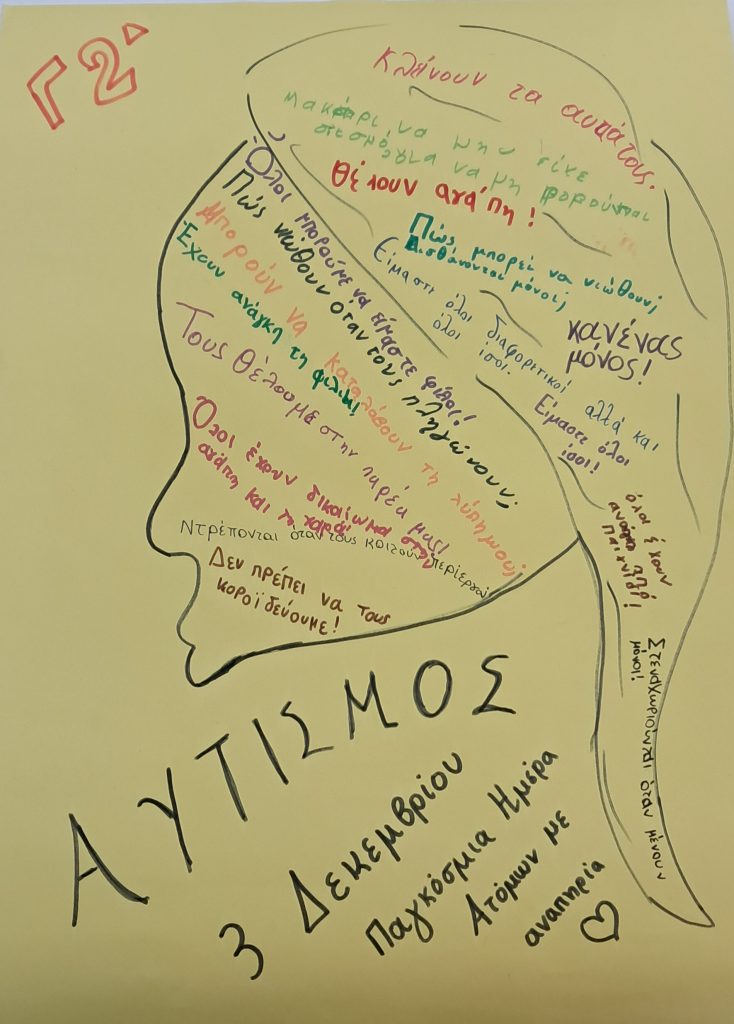 Γ2'
Κλείνουν τα αυτάτους.
Μακάρι να μην είχε
σεισμό για να μη φοβούνται
Θέλουν αγάπη!
Πώς, μπορεί να νιώθουν;
Αισθάνονται μόνοι;
Είμαστε όλοι διαφοριτικοί αλλά και
όλοι ίσοι.
κανένας
μόνος!
Είμαστε όλοι
ίσοι!
όλοι έχουν
ανάγκη
παιχνίδι!
Στεναχωριούνται όταν μένουν
μόνοι!
Όλοι μπορούμε να είμαστε φίλοι!
Πώς νιώθουν όταν τους πληγώνουν;
Μπορούν να καταλάβουν τη λύπη μου;
Έχουν ανάγκη τη φιλία!
Τους θέλουμε στην παρέα μας!
Όλοι έχουν δικαίωμα στην
αγάπη και τη χαρά!
Ντρέπονται όταν τους κοιτούν περίεργα
Δεν πρέπει να τους
κοροϊδεύουμε!
ΑΥΤΙΣΜΟΣ
3 Δεκεμβρίου
Παγκόσμια Ημέρα
Ατόμων με
αναπηρία